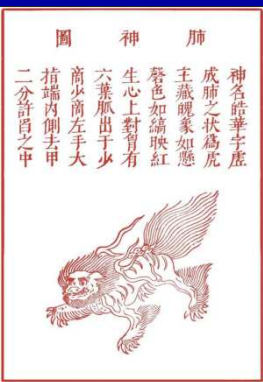 肺神圖
神名皓華字虛
成肺之狀爲虎
主藏魄象如懸
磬色如縞映紅
生心上對胷有
六葉脈出于少
商少商左手大
指端內側去甲
二分許舀之中